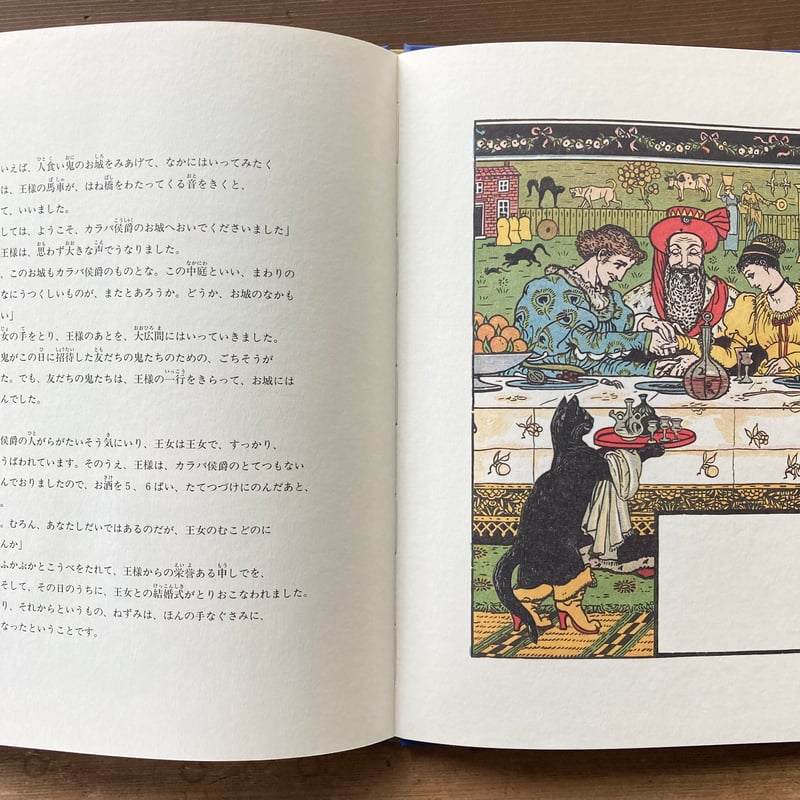 いえば、人食い鬼のお城をみあげて、なかにはいってみたく
は、王様の馬車が、はね橋をわたってくる音をきくと、
て、いいました。
しては、ようこそ、カラバ侯爵のお城へおいでくださいました」
王様は、思わず大きな声でうなりました。
、このお城もカラバ侯爵のものとな。この中庭といい、まわりの
なにうつくしいものが、またとあろうか。どうか、お城のなかも
い」
女の手をとり、王様のあとを、大広間にはいっていきました。
鬼がこの日に招待した友だちの鬼たちのための、ごちそうが
た。でも、友だちの鬼たちは、王様の一行をきらって、お城には
んでした。
侯爵の人がらがたいそう気にいり、王女は王女で、すっかり、
うばわれています。そのうえ、王様は、カラバ侯爵のとてつもない
んでおりましたので、お酒を5、6ぱい、たてつづけにのんだあと、
。
。むろん、あなたしだいではあるのだが、王女のむこどのに
んか」
ふかぶかとこうべをたれて、王様からの栄誉ある申しでを、
そして、その日のうちに、王女との結婚式がとりおこなわれました。
り、それからというもの、ねずみは、ほんの手なぐさみに、
なったということです。